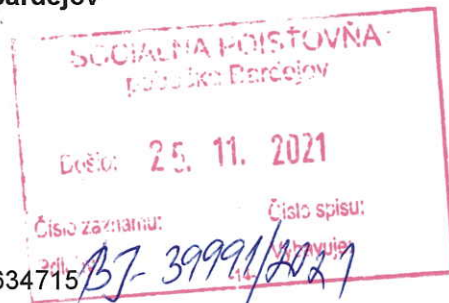 Bardejov
SOCIÁLNA POISŤOVŇA
pobočka Bardejov
Došlo: 25. 11. 2021
Číslo záznamu: Číslo spisu:
Vybavuje:
634715 BJ-39991/2021